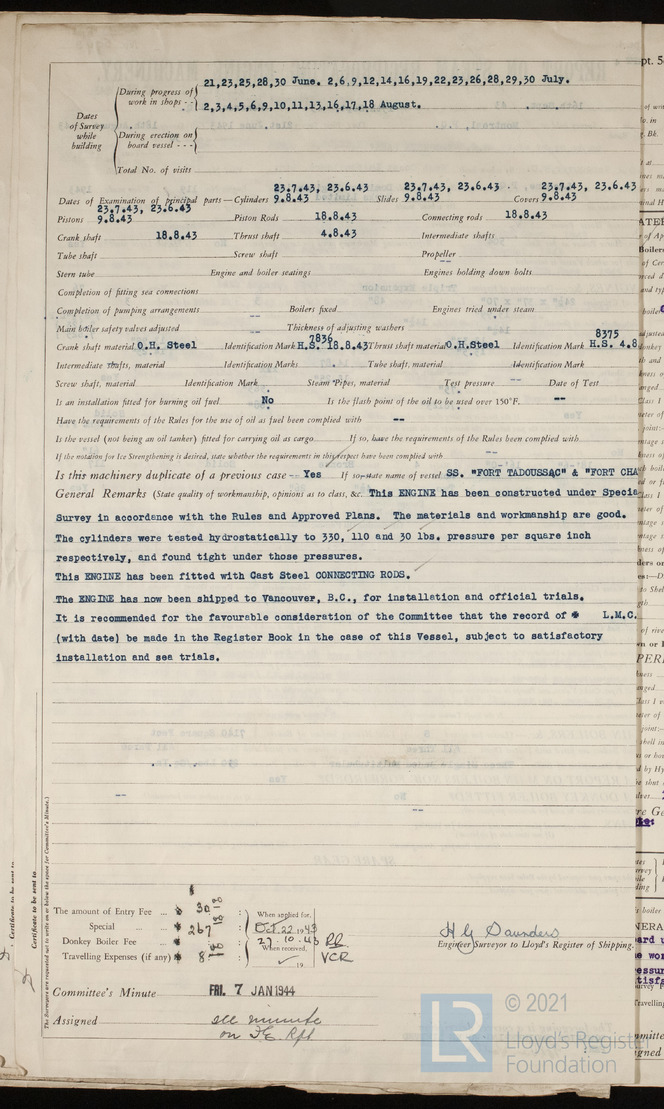 21,23,25,28,30 June. 2,6,9,12,14,16,19,22,23,26,28,29,30 July.
During progress of work in shops - -
2,3,4,5,6,9,10,11,13,16,17,18 August.
Dates of Survey while building
During erection on board vessel - - -
Total No. of visits
23.7.43, 23.6.43 23.7.43, 23.6.43 23.7.43, 23.6.43
Dates of Examination of principal parts—Cylinders 9.8.43 Slides 9.8.43 Covers 9.8.43
23.7.43, 23.6.43
Pistons 9.8.43 Piston Rods 18.8.43 Connecting rods 18.8.43
Crank shaft 18.8.43 Thrust shaft 4.8.43 Intermediate shafts
Tube shaft Screw shaft Propeller --
Stern tube Engine and boiler seatings Engines holding down bolts
Completion of fitting sea connections
Completion of pumping arrangements Boilers fixed Engines tried under steam
Main boiler safety valves adjusted Thickness of adjusting washers
7836 8375
Crank shaft material O.H. Steel Identification Mark H.S. 18.8.43 Thrust shaft material O.H.Steel Identification Mark H.S. 4.8
Intermediate shafts, material Identification Marks Tube shaft, material Identification Mark
Screw shaft, material Identification Mark Steam Pipes, material Test pressure -- Date of Test
Is an installation fitted for burning oil fuel No Is the flash point of the oil to be used over 150°F. --
Have the requirements of the Rules for the use of oil as fuel been complied with --
Is the vessel (not being an oil tanker) fitted for carrying oil as cargo If so, have the requirements of the Rules been complied with
If the notation for Ice Strengthening is desired, state whether the requirements in this respect have been complied with --
Is this machinery duplicate of a previous case -- Yes If so, state name of vessel SS. "FORT TADOUSSAC" & "FORT CHA
General Remarks (State quality of workmanship, opinions as to class, &c. This ENGINE has been constructed under Specia
Survey in accordance with the Rules and Approved Plans. The materials and workmanship are good.
The cylinders were tested hydrostatically to 330, 110 and 30 lbs. pressure per square inch
respectively, and found tight under those pressures.
This ENGINE has been fitted with Cast Steel CONNECTING RODS.
The ENGINE has now been shipped to Vancouver, B.C., for installation and official trials.
It is recommended for the favourable consideration of the Committee that the record of * L.M.C.
(with date) be made in the Register Book in the case of this Vessel, subject to satisfactory
installation and sea trials.
The Surveyors are requested not to write on or below the space for Committee's Minute.)
Certificate to be sent to
The amount of Entry Fee ... $ 30
Special ... $ 267
Donkey Boiler Fee ...
Travelling Expenses (if any) $ 8
When applied for,
Oct. 22 1943
27.10.43 RR
When received,
19 VCR
H G Saunders
Engineer Surveyor to Lloyd's Register of Shipping.
Committee's Minute FRI. 7 JAN 1944
Assigned see minute
on F.E. Rpt
© 2021
Lloyd's Register
Foundation